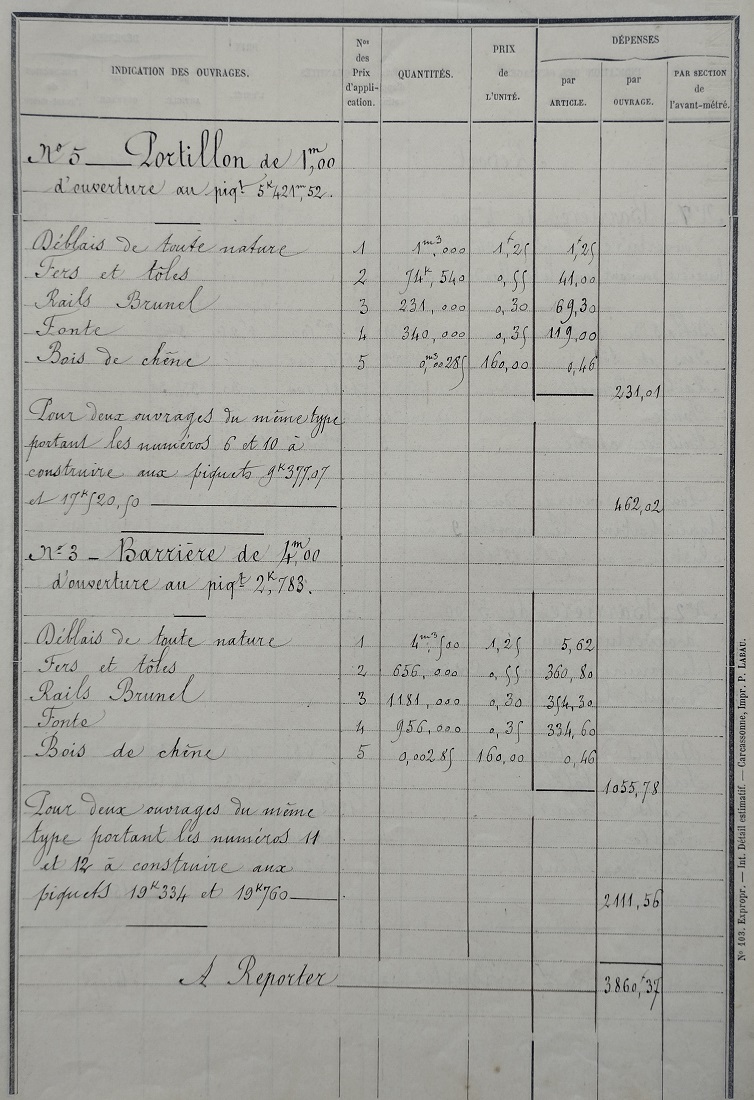 INDICATION DES OUVRAGES. Nos des Prix d'appli-cation. QUANTITÉS. PRIX de L'UNITÉ. DÉPENSES par ARTICLE. par OUVRAGE. PAR SECTION de l'avant-métré.
No 5 — Portillon de 1m,00
d'ouverture au piqt 5k421m,52.
Déblais de toute nature 1 1m3,000 1f,25 1f,25
Fers et tôles 2 74k,540 0,55 41,00
Rails Brunel 3 231,000 0,30 69,30
Fonte 4 340,000 0,35 119,00
Bois de chêne 5 0m3,00285 160,00 0,46
231,01
Pour deux ouvrages du même type
portant les numéros 6 et 10 à
construire aux piquets 9k377.07
et 17k520,50 — 462,02
No 3 — Barrière de 4m,00
d'ouverture au piqt 2k,783.
Déblais de toute nature 1 4m3,500 1,25 5,62
Fers et tôles 2 656,000 0,55 360,80
Rails Brunel 3 1181,000 0,30 354,30
Fonte 4 956,000 0,35 334,60
Bois de chêne 5 0,00285 160,00 0,46
1055,78
Pour deux ouvrages du même
type portant les numéros 11
et 12 à construire aux
piquets 19k334 et 19k760 — 2111,56
A Reporter 3860,f37
No 103. Expropr. — Int. Détail estimatif. — Carcassonne, Impr. P. LABAU.